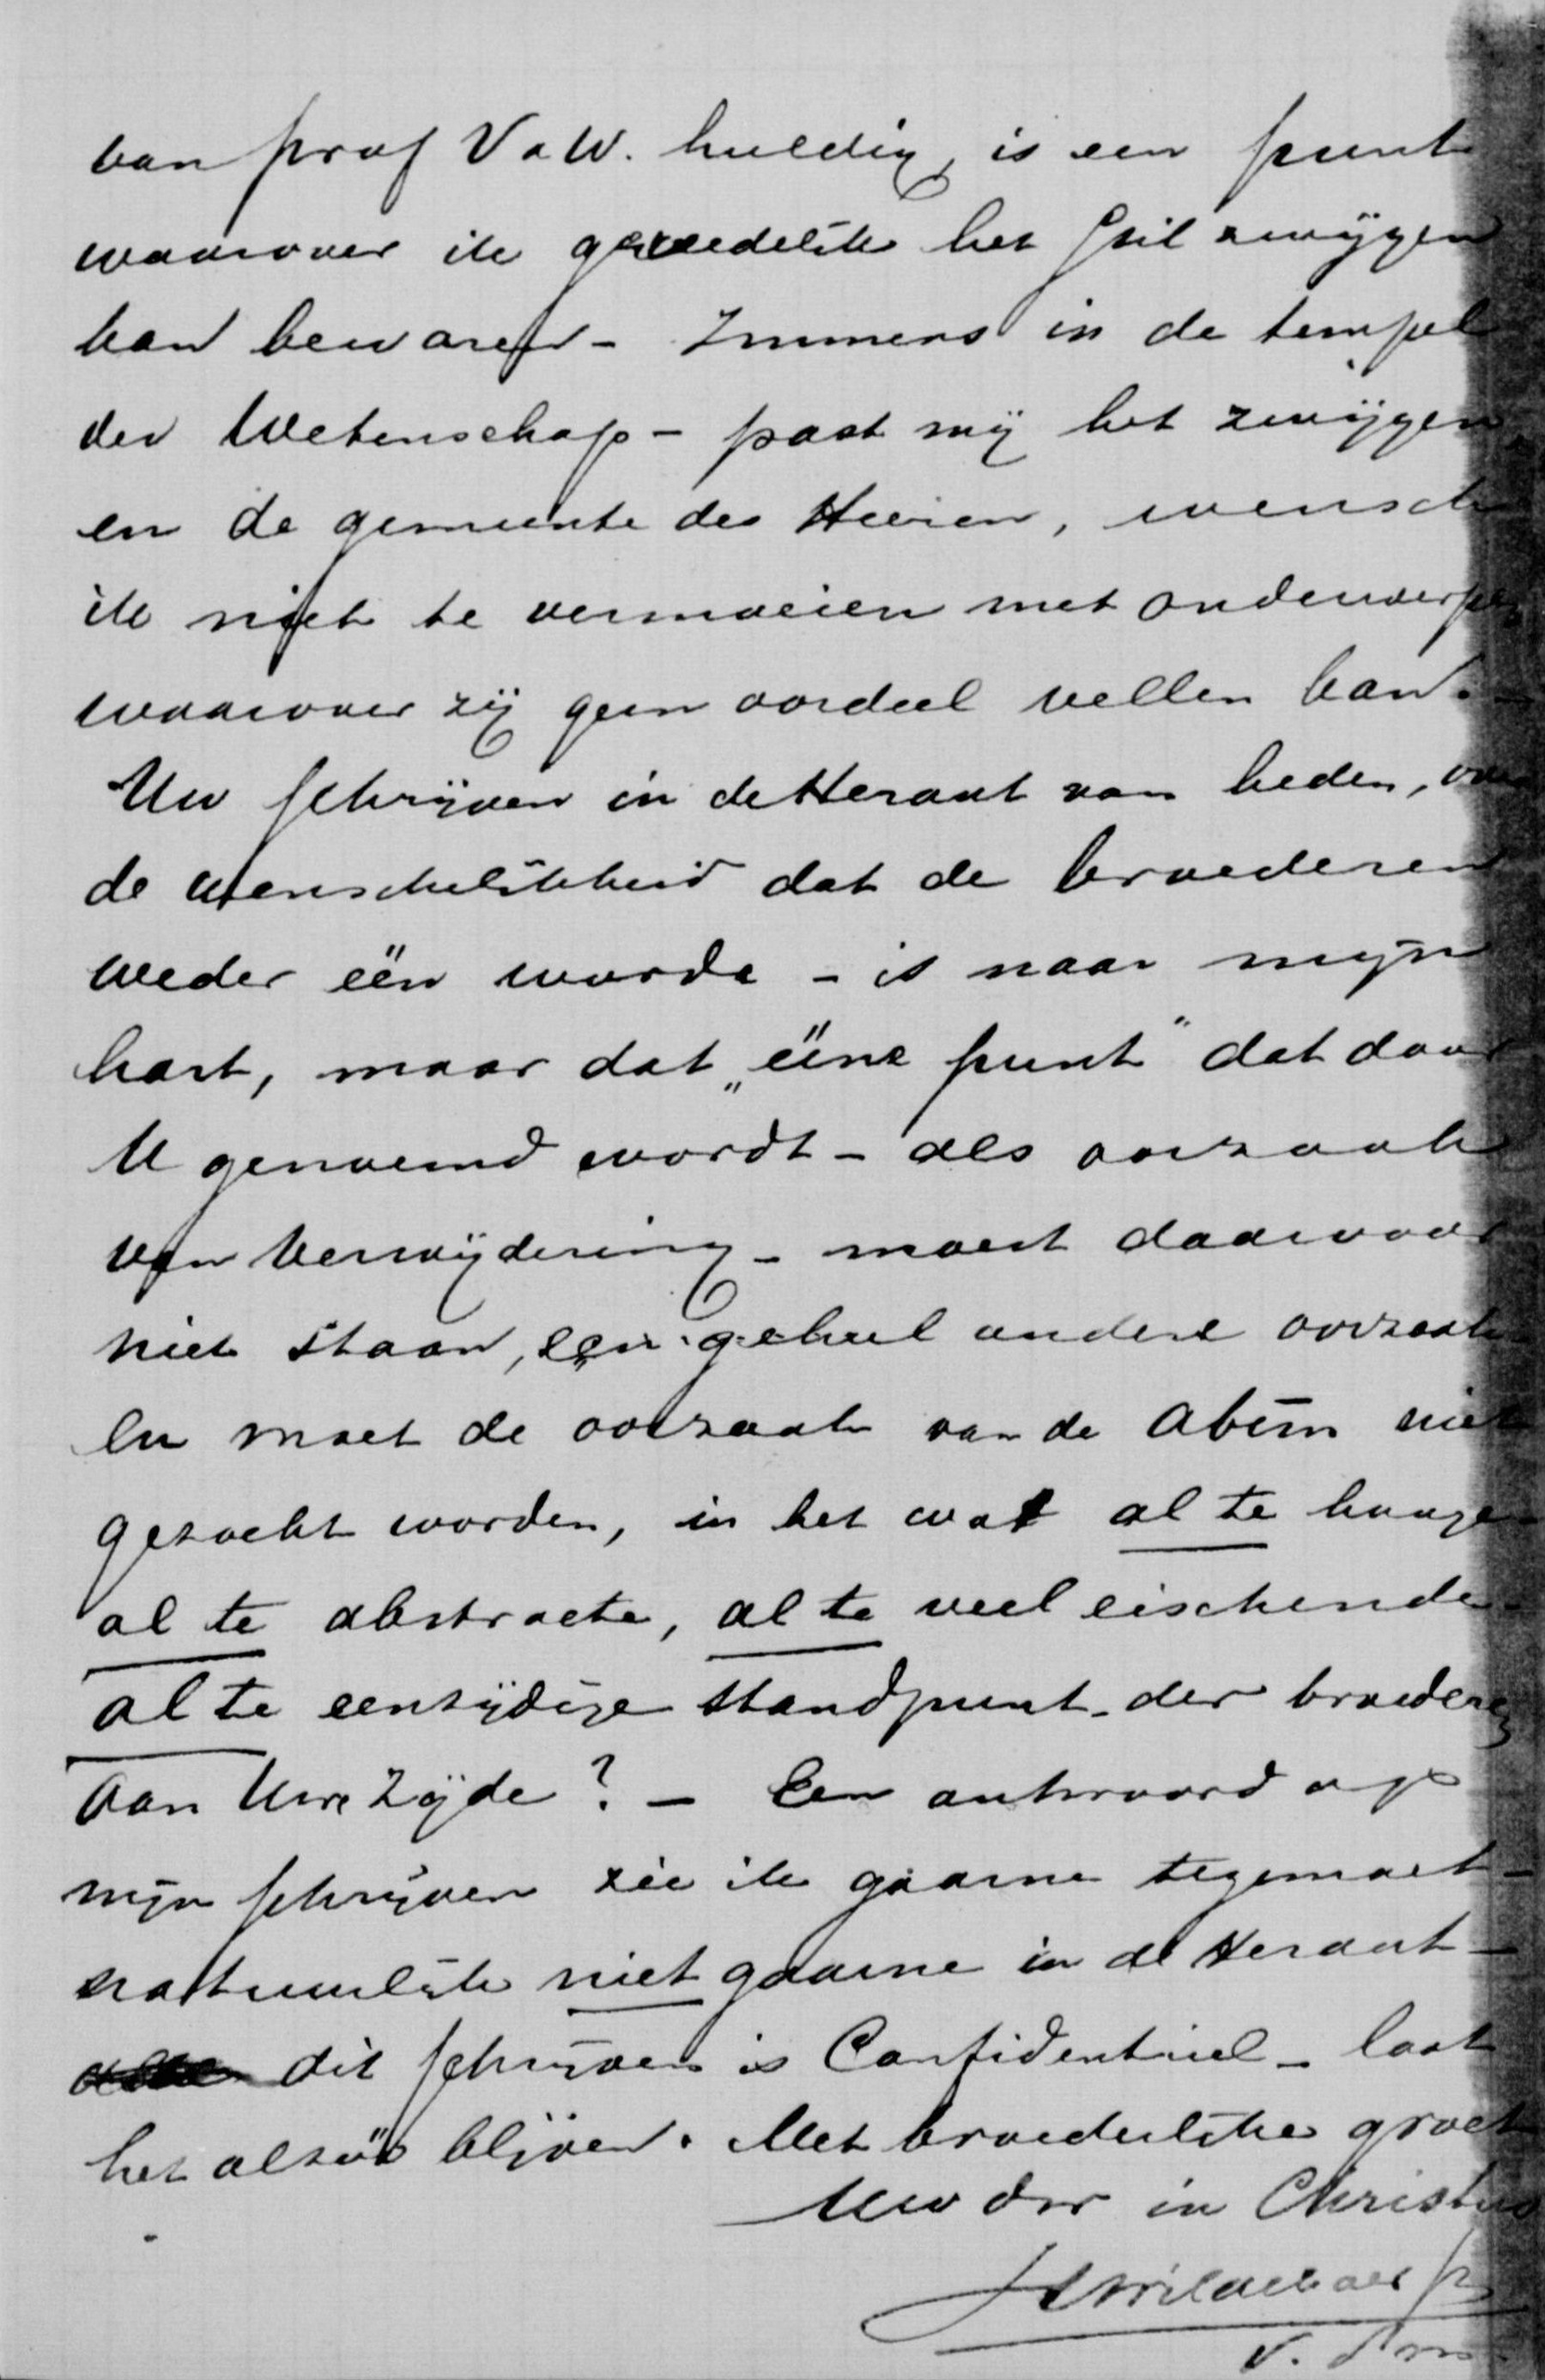 van prof V d W. huldig, is een punt
waarover ik gevoedelik het stil zwijgen
kan bewaren - Immers in de tempel
der Wetenschap - past mij het zwijgen
en de gemeente des Heeren, wensch
ik niet te vermoeien met onderwerpen
waarover zij geen oordeel vellen kan. -
Uw schrijven in de Heraut van heden, over
de wenschelikheid dat de broederen
weder één worde - is naar mijn
hart, maar dat „ééne punt" dat door
U genoemd wordt - als oorzaak
van Verwijdering - moest daarvoor
niet staan, een geheel andere oorzaak
En moet de oorzaak van de abîm niet
gezocht worden, in het wat al te hooge
al te abstracte, al te veel eischende -
al te eenzijdige standpunt der broederen
aan Uwe Zijde? - Een antwoord op
mijn schrijven zie ik gaarne tegemoet -
natuurlik niet gaarne in de Heraut -
dit schrijven is Confidentieel - laat
het alzóó blijven. Met broederlike groet
Uw dnr in Christus
V. d. m